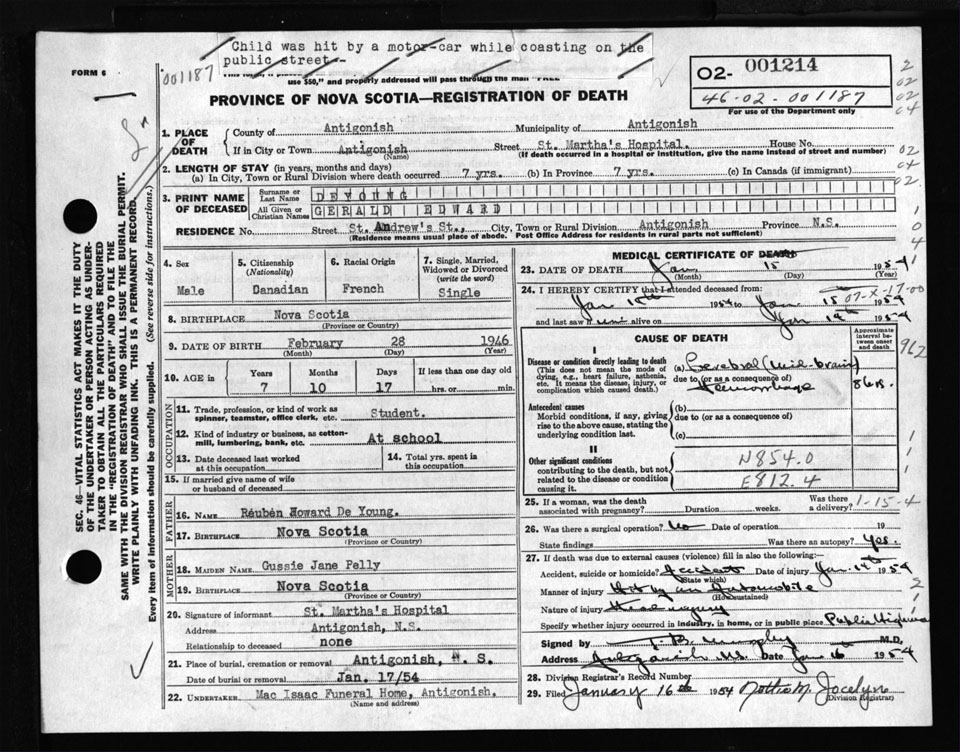 Child was hit by a motor-car while coasting on the
public street.-
FORM 6
001187
use $50," and properly addressed will pass through the mail "FREE"
PROVINCE OF NOVA SCOTIA—REGISTRATION OF DEATH
O2- 001214
46-02-001187
For use of the Department only
1. PLACE OF DEATH
County of Antigonish Municipality of Antigonish
If in City or Town Antigonish Street St. Martha's Hospital. House No.
(Name) (If death occurred in a hospital or institution, give the name instead of street and number)
2. LENGTH OF STAY (in years, months and days)
(a) In City, Town or Rural Division where death occurred 7 yrs. (b) In Province 7 yrs. (c) In Canada (if immigrant)
3. PRINT NAME OF DECEASED
Surname or Last Name DEYOUNG
All Given or Christian Names GERALD EDWARD
RESIDENCE No. Street St. Andrew's St., City, Town or Rural Division Antigonish Province N.S.
(Residence means usual place of abode. Post Office Address for residents in rural parts not sufficient)
4. Sex
Male
5. Citizenship (Nationality)
Canadian
6. Racial Origin
French
7. Single, Married, Widowed or Divorced (write the word)
Single
8. BIRTHPLACE Nova Scotia
(Province or Country)
9. DATE OF BIRTH February 28 1946
(Month) (Day) (Year)
10. AGE in Years Months Days If less than one day old
7 10 17 hrs. or min.
OCCUPATION
11. Trade, profession, or kind of work as spinner, teamster, office clerk, etc. Student.
12. Kind of industry or business, as cotton-mill, lumbering, bank, etc. At school
13. Date deceased last worked at this occupation
14. Total yrs. spent in this occupation
15. If married give name of wife or husband of deceased
FATHER
16. NAME Reuben Howard De Young.
17. BIRTHPLACE Nova Scotia
(Province or Country)
MOTHER
18. MAIDEN NAME Gussie Jane Pelly
19. BIRTHPLACE Nova Scotia
(Province or Country)
20. Signature of informant St. Martha's Hospital
Address Antigonish, N.S.
Relationship to deceased none
21. Place of burial, cremation or removal Antigonish, N. S.
Date of burial or removal Jan. 17/54
22. UNDERTAKER Mac Isaac Funeral Home, Antigonish.
(Name and address)
MEDICAL CERTIFICATE OF DEATH
23. DATE OF DEATH Jan 15 1954
(Month) (Day) (Year)
24. I HEREBY CERTIFY that I attended deceased from:
Jan 15th 1954 to Jan 15 1954
07-X-17-00
and last saw him alive on Jan 14th 1954
CAUSE OF DEATH
Approximate interval between onset and death
I
Disease or condition directly leading to death
(This does not mean the mode of dying, e.g., heart failure, asthenia, etc. It means the disease, injury, or complication which caused death.)
(a) Cerebral (mid-brain)
due to (or as a consequence of)
Hemorrhage 8 hr.
Antecedent causes
Morbid conditions, if any, giving rise to the above cause, stating the underlying condition last.
(b)
due to (or as a consequence of)
(c)
II
Other significant conditions
contributing to the death, but not related to the disease or condition causing it.
N854.0
E812.4
962
25. If a woman, was the death associated with pregnancy? Duration weeks. Was there a delivery?
1-15-4
26. Was there a surgical operation? No Date of operation 19
State findings Was there an autopsy? Yes.
27. If death was due to external causes (violence) fill in also the following:
Accident, suicide or homicide? Accident Date of injury Jan. 14th 1954
(State which)
Manner of injury Hit by an Automobile
(How sustained)
Nature of injury Head injury
Specify whether injury occurred in industry, in home, or in public place Public Highway
Signed by T. B. Murphy M.D.
Address Antigonish N.S. Date Jan 16th 1954
28. Division Registrar's Record Number
29. Filed January 16th 1954 Nottie M. Jocelyn
(Division Registrar)
SEC. 46—VITAL STATISTICS ACT MAKES IT THE DUTY
OF THE UNDERTAKER OR PERSON ACTING AS UNDER-
TAKER TO OBTAIN ALL THE PARTICULARS REQUIRED
IN THE "REGISTRATION OF DEATH" AND TO FILE THE
SAME WITH THE DIVISION REGISTRAR WHO SHALL ISSUE THE BURIAL PERMIT.
WRITE PLAINLY WITH UNFADING INK. THIS IS A PERMANENT RECORD.
Every item of information should be carefully supplied. (See reverse side for instructions.)